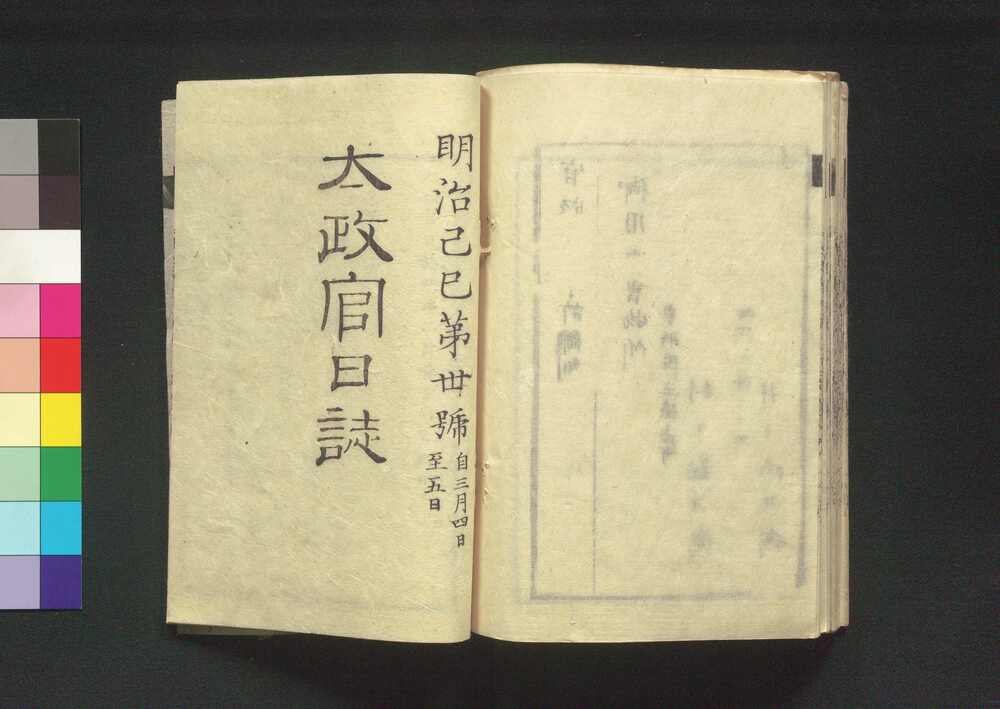 明治己巳第丗號
自三月四日
至五日
太政官日誌